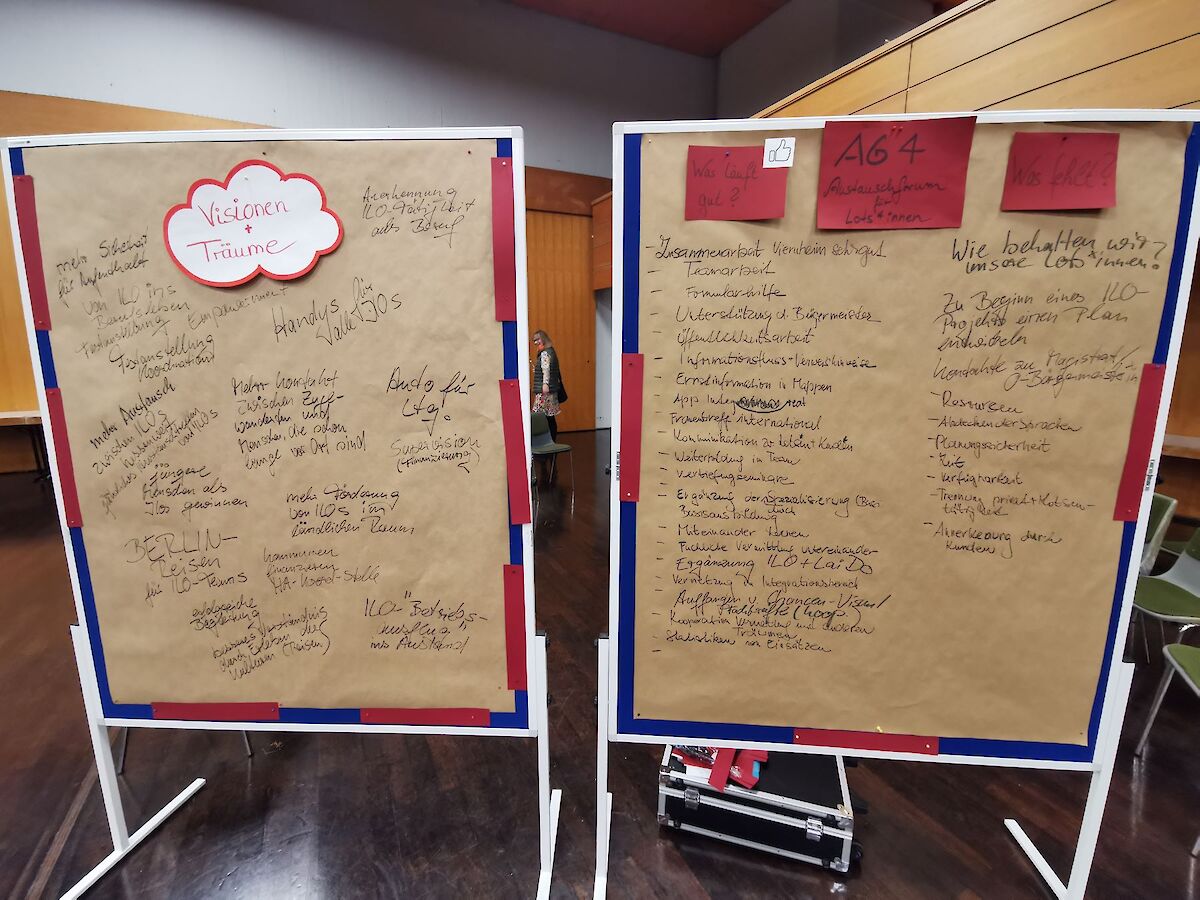 Visionen
+
Träume
Anerkennung
ILO-Tätigkeit
als Beruf
mehr Sicherheit
für Aufenthalt
von ILO ins
Berufsleben
Festanstellung
Empowerment
Festanstellung
(Koordination)
Handys für
alle ILOs
mehr Austausch
zwischen ILOs
hessenweit
von ILOs
Mehr Kontakt
zwischen Zuge-
wanderten und
Menschen, die schon
lange vor Ort sind
Auto für
Htg.
Supervision
(+Finanzierung)
jüngere
Menschen als
ILOs gewinnen
mehr Förderung
von ILOs im
ländlichen Raum
BERLIN-
Reisen
für ILO-Teams
kommunen
finanzieren
HA-Koord-Stelle
Begleitung
besseres Verständnis
durch Erleben der
Kulturen (Reisen)
ILO-"Betriebs-
ausflug"
ins Ausland
Was läuft
gut?
AG 4
Austauschforum
für
Lots*innen
Was fehlt?
- Zusammenarbeit Viernheim sehr gut
- Teamarbeit
- Formularhilfe
- Unterstützung d. Bürgermeister
- Öffentlichkeitsarbeit
- Informationsfluss-Verweishinweise
- Erstinformation in Mappen
- App Integreat
- Frauentreff international
- Kommunikation zw. Lotsen+Kunden
- Weiterbildung im Team
- Vertiefungseminare
- Ergänzung der Spezialisierung (Bas
Basisausbildung doch
- Miteinander lernen
- Fachliche Vermittlung untereinander
- Ergänzung ILO + LaiDo
- Vernetzung im Integrationsbereich
- Auffangen v. Chancen-Visum/
Fachkräfte (Koop.)
- Kooperation Vernetzung mit anderen
Trägern
- Statistiken von Einsätzen
-
Wie behalten wir
unsere Lots*innen?
Zu Beginn eines ILO-
Projekts einen Plan
entwickeln
Kontakte zu Magistrat/
O-Bürgermeister*in
- Resourcen
- Abdecken der Sprachen
- Planungssicherheit
- Zeit
- Verfügbarkeit
- Trennung privat + Lotsen-
tätigkeit
- Anerkennung durch
Kunden